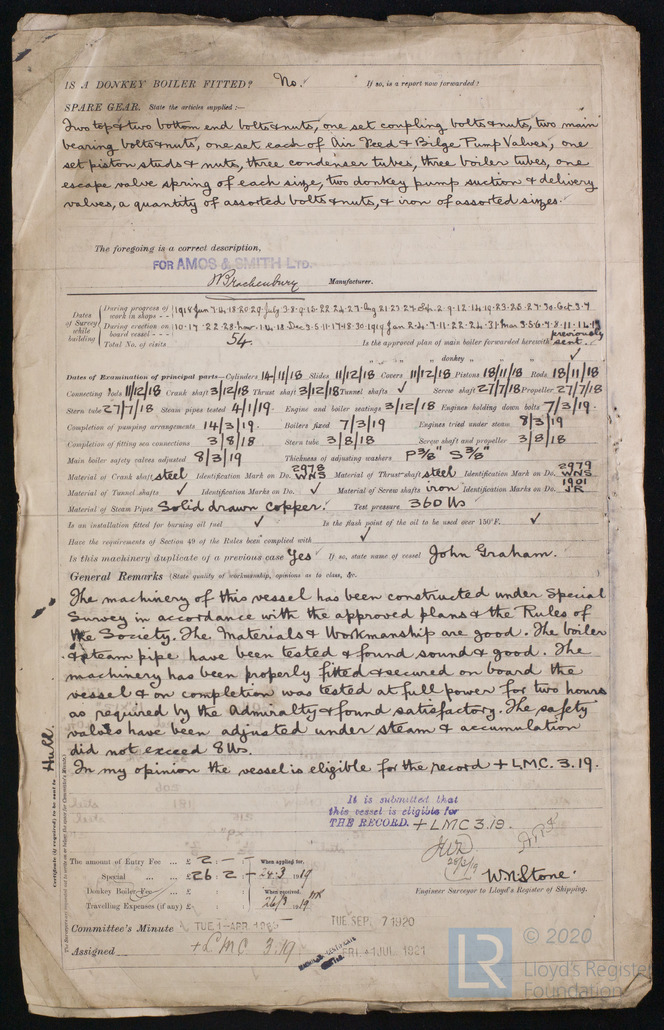 IS A DONKEY BOILER FITTED? No. If so, is a report now forwarded?
SPARE GEAR. State the articles supplied:—
Two top & two bottom end bolts & nuts, one set coupling bolts & nuts, two main
bearing bolts & nuts, one set each of Air Feed & Bilge Pump Valves, one
set piston studs & nuts, three condenser tubes, three boiler tubes, one
escape valve spring of each size, two donkey pump suction & delivery
valves, a quantity of assorted bolts & nuts, & iron of assorted sizes.
The foregoing is a correct description,
FOR AMOS & SMITH LTD.
Manufacturer.
Dates of Survey while building
During progress of work in shops - - 1918 Jun
During erection on board vessel - - -
Total No. of visits 54. Is the approved plan of main boiler forwarded herewith previously sent.
" " " donkey " " " ✓
Dates of Examination of principal parts—Cylinders 14/11/18 Slides 11/12/18 Covers 11/12/18 Pistons 18/11/18 Rods 18/11/18
Connecting rods 11/12/18 Crank shaft 3/12/18 Thrust shaft 3/12/18 Tunnel shafts ✓ Screw shaft 27/7/18 Propeller 27/7/18
Stern tube 27/7/18 Steam pipes tested 4/1/19. Engine and boiler seatings 3/12/18 Engines holding down bolts 7/3/19.
Completion of pumping arrangements 14/3/19. Boilers fixed 7/3/19 Engines tried under steam 8/3/19
Completion of fitting sea connections 3/8/18 Stern tube 3/8/18 Screw shaft and propeller 3/8/18
Main boiler safety valves adjusted 8/3/19 Thickness of adjusting washers P 3/8" S 3/8"
Material of Crank shaft steel Identification Mark on Do. 2978 WNS Material of Thrust shaft steel Identification Mark on Do. 2979 WNS
Material of Tunnel shafts ✓ Identification Marks on Do. ✓ Material of Screw shafts iron Identification Marks on Do. 1901 JR
Material of Steam Pipes Solid drawn copper. Test pressure 360 lbs
Is an installation fitted for burning oil fuel ✓ Is the flash point of the oil to be used over 150°F. ✓
Have the requirements of Section 49 of the Rules been complied with ✓
Is this machinery duplicate of a previous case Yes If so, state name of vessel John Graham.
General Remarks (State quality of workmanship, opinions as to class, &c.
The machinery of this vessel has been constructed under Special
Survey in accordance with the approved plans & the Rules of
the Society. The Materials & Workmanship are good. The boiler
& steam pipe have been tested & found sound & good. The
machinery has been properly fitted & secured on board the
vessel & on completion was tested at full power for two hours
as required by the Admiralty & found satisfactory. The safety
valves have been adjusted under steam & accumulation
did not exceed 8 lbs.
In my opinion the vessel is eligible for the record + LMC. 3.19.
It is submitted that
this vessel is eligible for
THE RECORD. + LMC 3.19.
The amount of Entry Fee ... £ 2 : - : - When applied for,
Special ... £ 26 : 2 : - 24.3.1919
Donkey Boiler Fee ... £ When received,
Travelling Expenses (if any) £ 26/3 1919
W.N. Stone.
Engineer Surveyor to Lloyd's Register of Shipping.
Committee's Minute TUE 1 - APR. 19 TUE SEP. 7 1920
Assigned + LMC 3.19. FRI. 1 JUL 1921
Certificate (if required) to be sent to Hull.
© 2020
LR
Lloyd's Register
Foundation